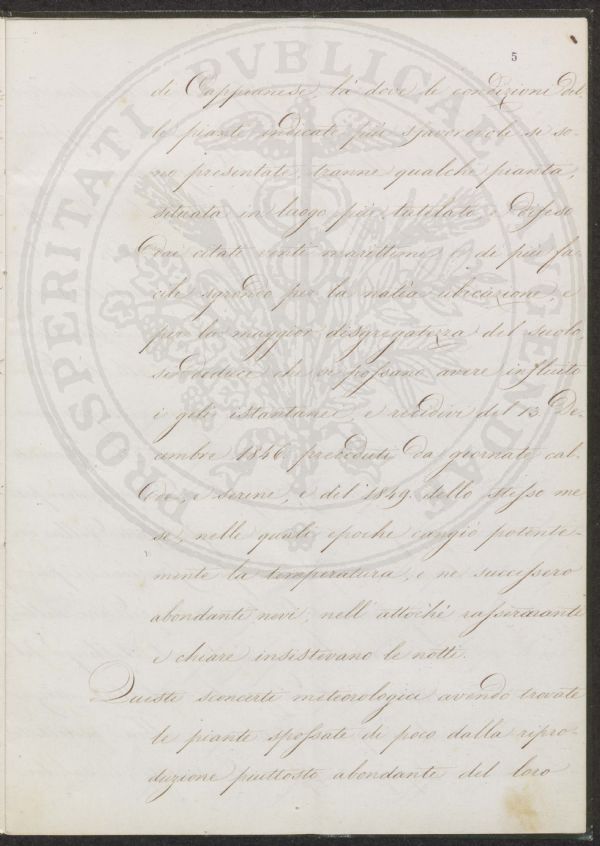 5
di Cappranese, là dove le condizioni del-
le piante indicate più sfavorevoli si so-
no presentate, tranne qualche pianta,
situata in luogo più tutelato e difeso
dai citati venti marittimi, e di più fa-
cile sgrondo per la natia ubicazione, e
per la maggior disgregatezza del suolo,
si deduce che vi possano avere influito
i geli istantanei e recidivi del 13 De-
cembre 1846 preceduti da giornate cal-
de, e serene, e del 1849. dello stesso me-
se, nelle quali epoche cangiò potente-
mente la temperatura, e ne successero
abondanti nevi, nell' attochè rasserenanti
e chiare insistevano le notti.
Questi sconcerti meteorologici avendo trovate
le piante spossate di poco dalla ripro-
duzione piuttosto abondante del loro
PROSPERITATI PVBLICAE AVGENDAE